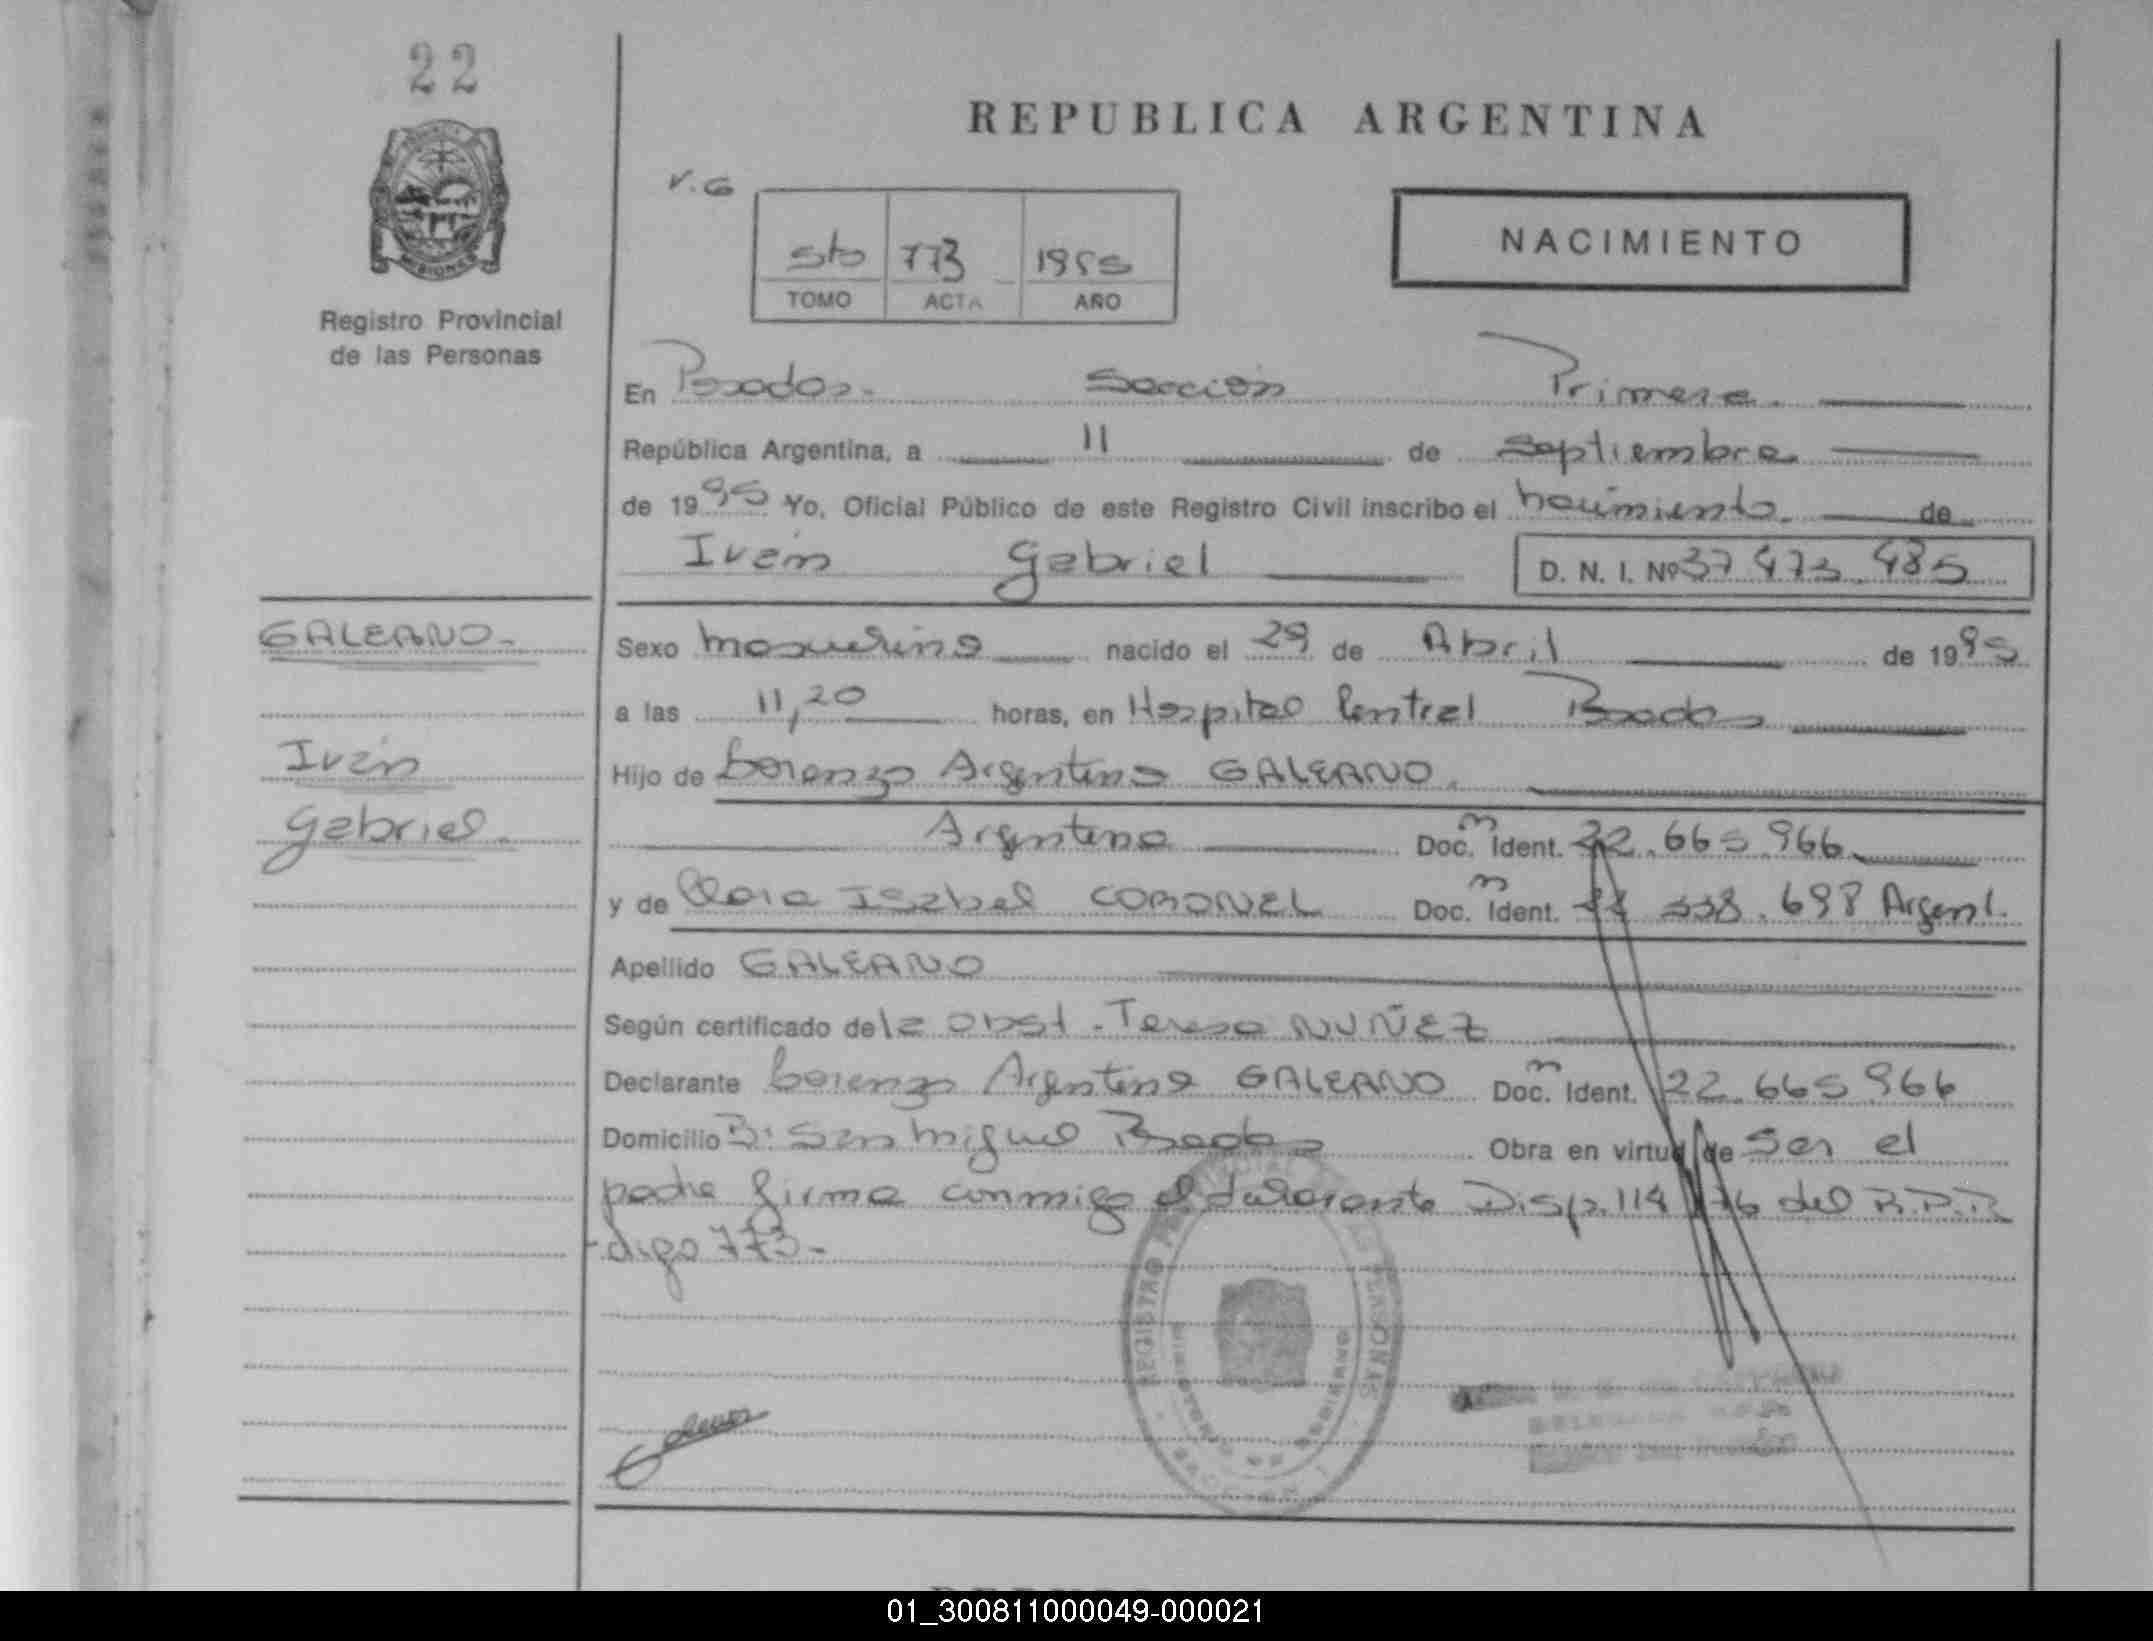 22
REPUBLICA ARGENTINA
V.G
5to 773 1995
TOMO ACTA AÑO
NACIMIENTO
MISIONES
Registro Provincial
de las Personas
En Posadas. Sección Primera.
República Argentina, a 11 de Septiembre
de 1995 Yo, Oficial Público de este Registro Civil inscribo el nacimiento de
Iván Gabriel D. N. I. Nº 37 473.485
GALEANO.
Sexo masculino nacido el 29 de Abril de 1995
a las 11,20 horas, en Hospital Central Posadas
Iván
Hijo de Lorenzo Argentino GALEANO.
Gabriel.
Argentino Doc. Ident. 22.665.966
y de Clara Isabel CORONEL Doc. Ident. 338.698 Argent.
Apellido GALEANO
Según certificado de la obst. Teresa NUÑEZ
Declarante Lorenzo Argentino GALEANO Doc. Ident. 22.665 966
Domicilio Bº San Miguel Posadas Obra en virtud de ser el
padre firma conmigo el declarante Disp. 114/76 del R.P.P
-digo 773-
REGISTRO PERSONAS
01_300811000049-000021